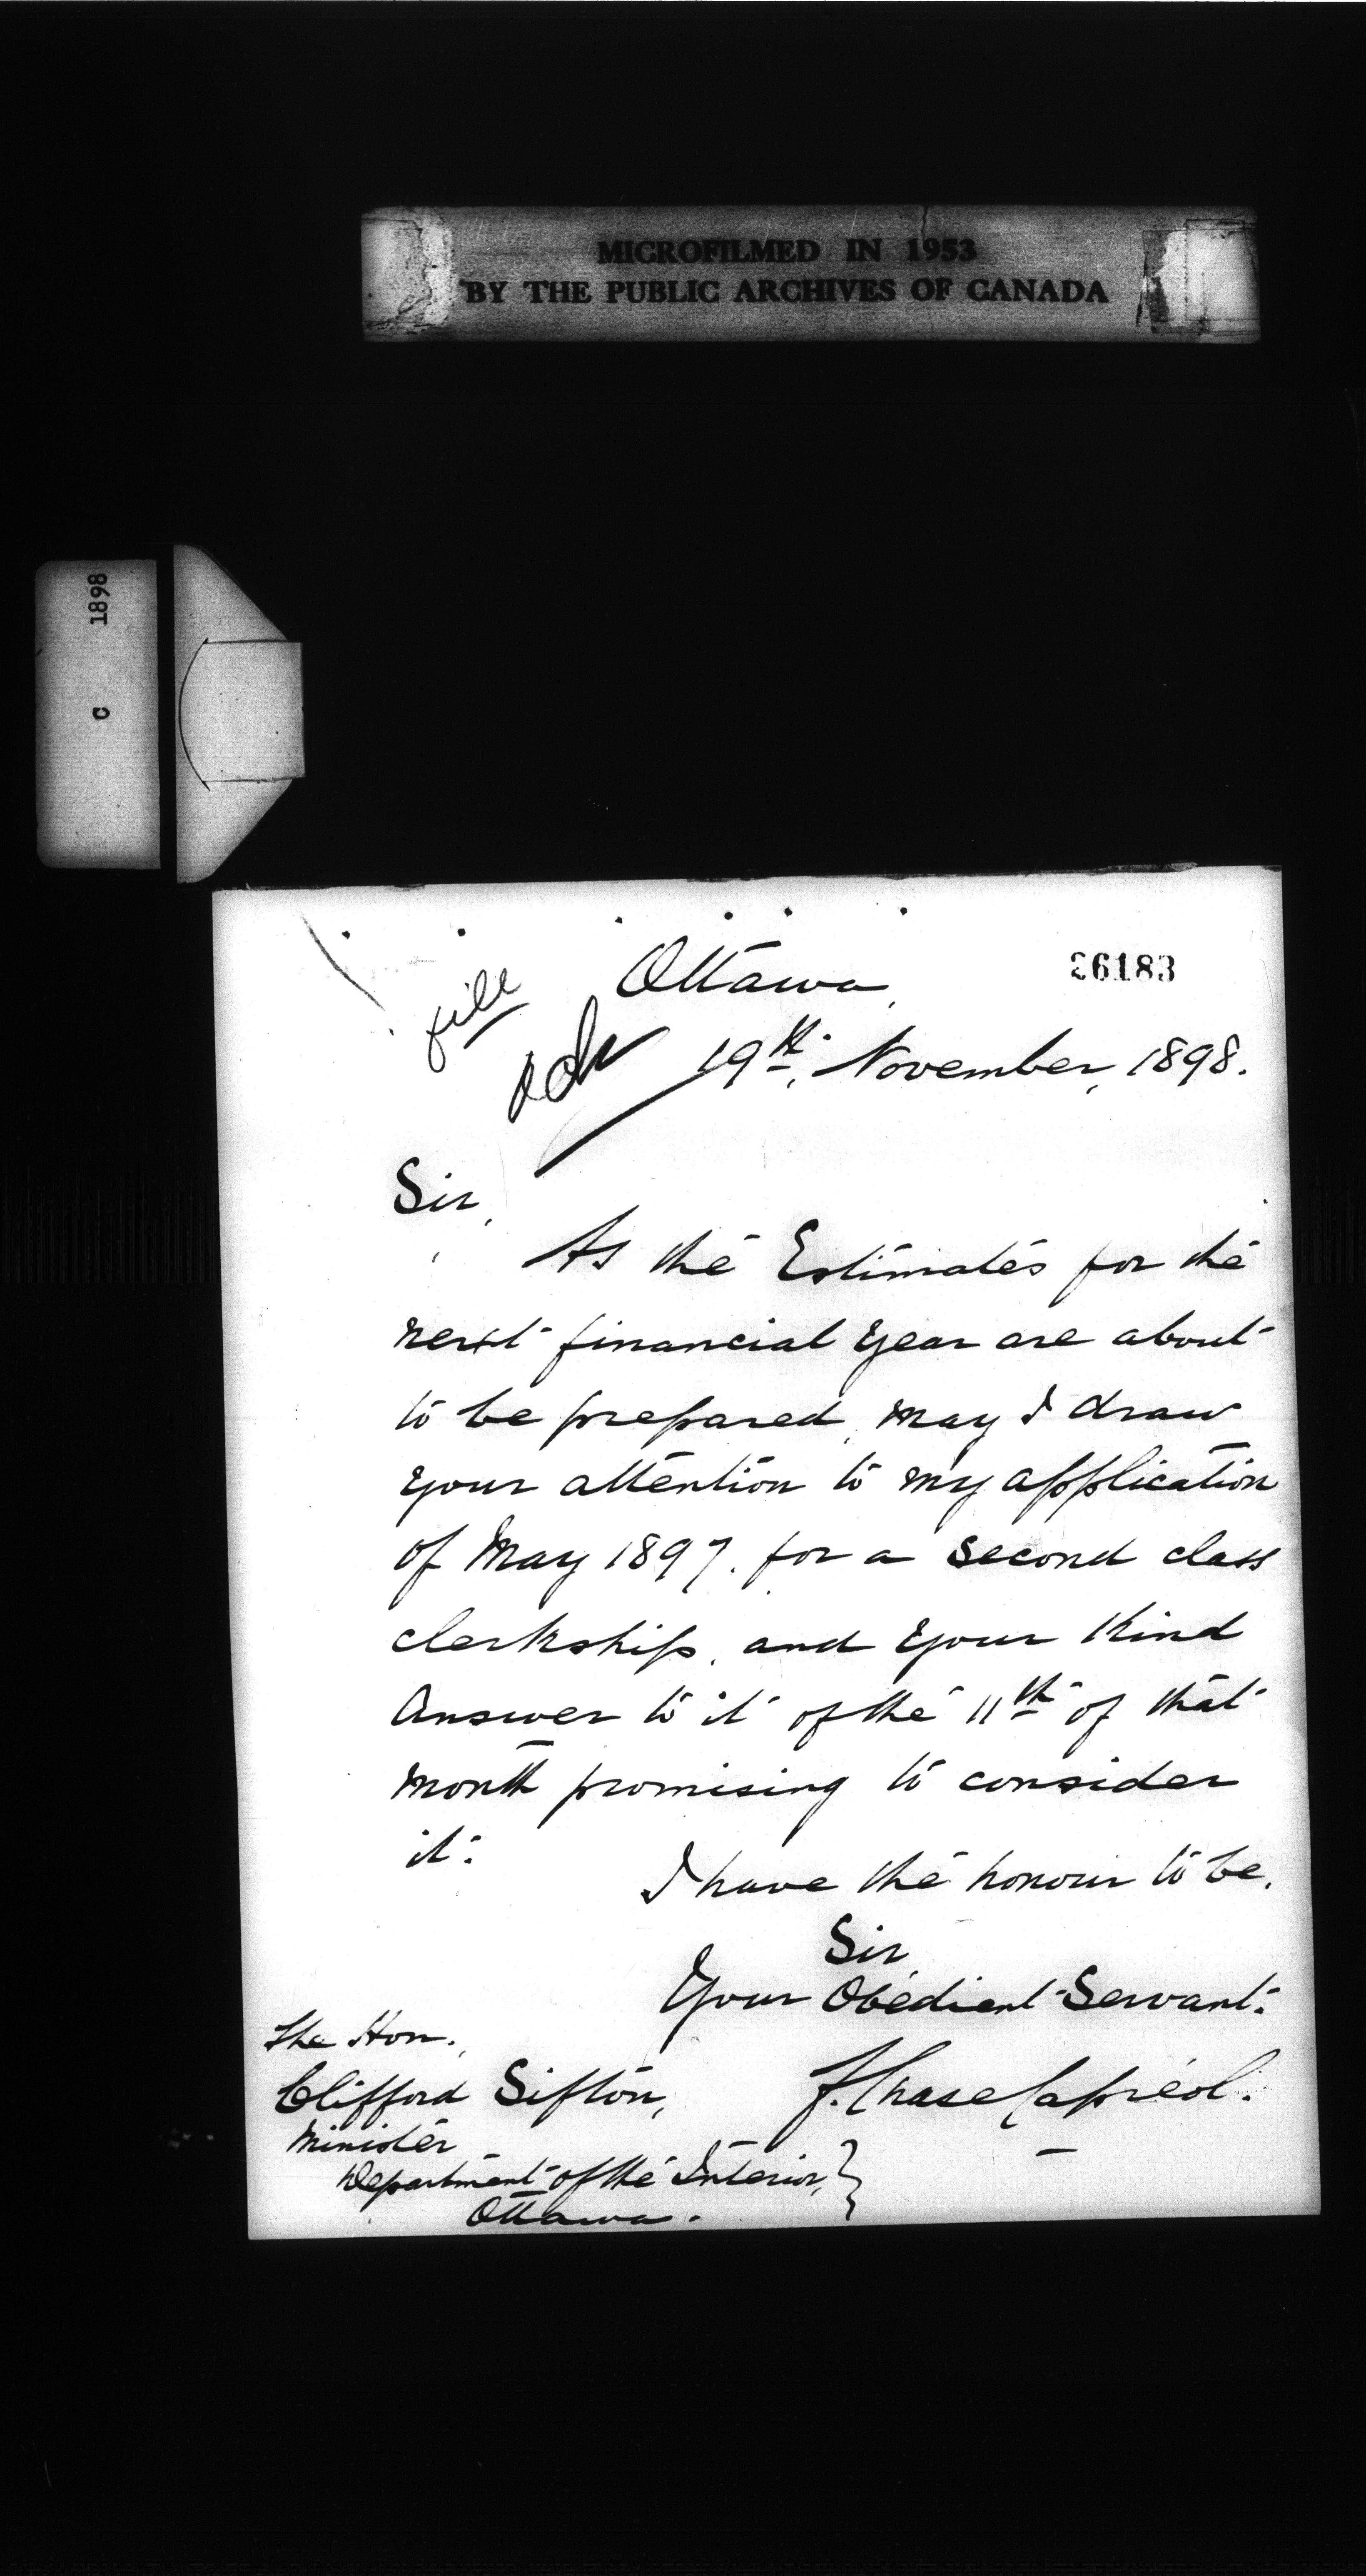 MICROFILMED IN 1953
BY THE PUBLIC ARCHIVES OF CANADA
C 1898
Ottawa,
26183
file
19th, November, 1898.
Sir,
As the Estimates for the
next financial year are about
to be prepared, may I draw
your attention to my application
of May 1897. for a second class
clerkship, and your kind
Answer to it of the 11th of that
month promising to consider
it.
I have the honour to be,
Sir,
Your Obedient Servant.
F. Chase Capreol.
The Hon.,
Clifford Sifton,
Minister
Department of the Interior,
Ottawa.